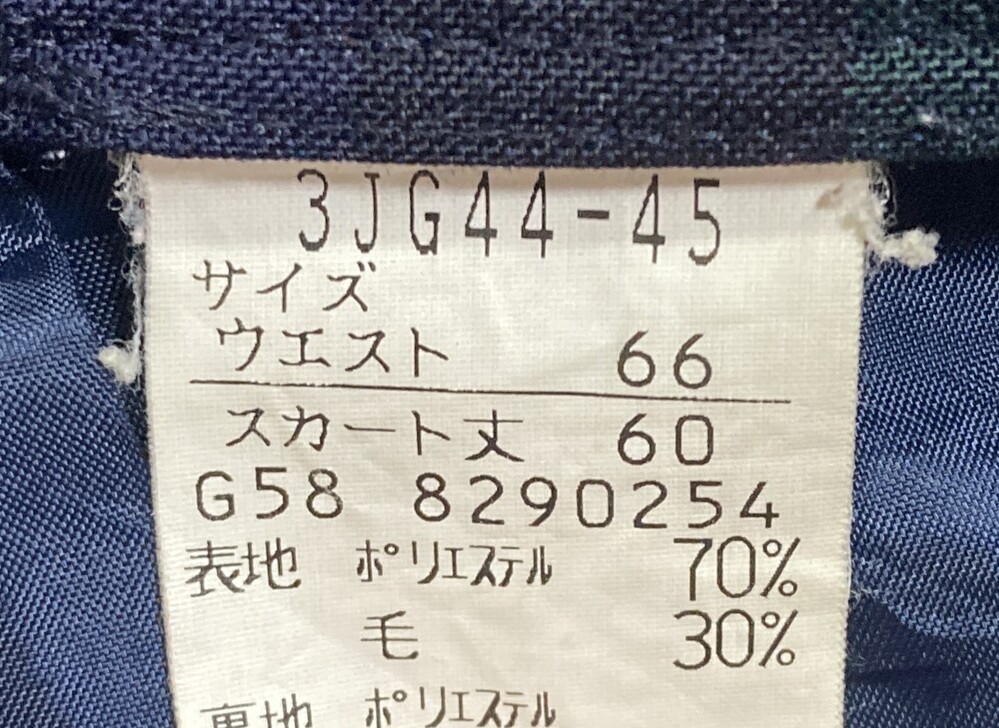 3JG44-45
サイズ
ウエスト 66
スカート丈 60
G58 8290254
表地 ポリエステル 70%
毛 30%
裏地 ポリエステル